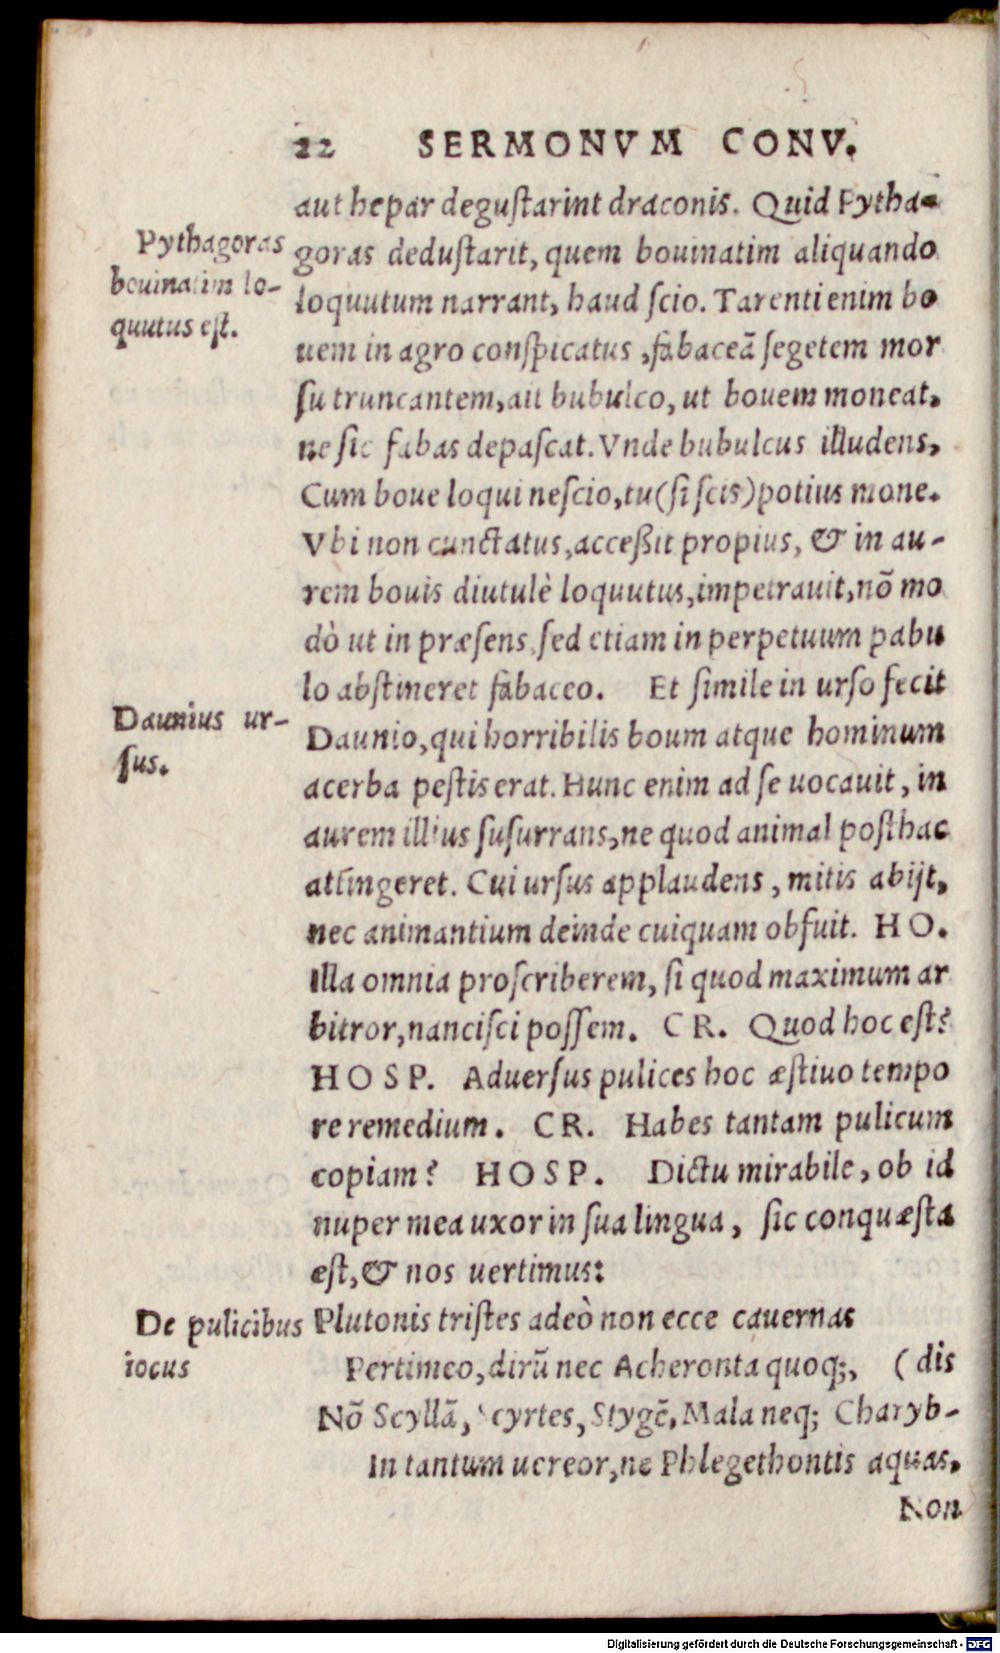 22 SERMONVM CONV.
aut hepar degustarint draconis. Quid Pytha-
goras dedustarit, quem bouinatim aliquando
loquutum narrant, haud scio. Tarenti enim bo
uem in agro conspicatus, fabaceā segetem mor
su truncantem, ait bubulco, ut bouem moneat,
ne sic fabas depascat. Vnde bubulcus illudens,
Cum boue loqui nescio, tu (si scis) potius mone.
Vbi non cunctatus, accessit propius, & in au-
rem bouis diutulè loquutus, impetrauit, nō mo
dò ut in præsens, sed etiam in perpetuum pabu
lo abstineret fabaceo. Et simile in urso fecit
Daunio, qui horribilis boum atque hominum
acerba pestis erat. Hunc enim ad se uocauit, in
aurem illius susurrans, ne quod animal posthac
attingeret. Cui ursus applaudens, mitis abijt,
nec animantium deinde cuiquam obfuit. HO.
Illa omnia proscriberem, si quod maximum ar
bitror, nancisci possem. CR. Quod hoc est?
HOSP. Aduersus pulices hoc æstiuo tempo
re remedium. CR. Habes tantam pulicum
copiam? HOSP. Dictu mirabile, ob id
nuper mea uxor in sua lingua, sic conquæsta
est, & nos uertimus:
Plutonis tristes adeò non ecce cauernas
Pertimeo, dirū nec Acheronta quoq;, (dis
Nō Scyllā, Scyrtes, Stygē, Mala neq; Charyb-
In tantum uereor, ne Phlegethontis aquas,
Non
Pythagoras
bouinatim lo-
quutus est.
Daunius ur-
sus.
De pulicibus
iocus
Digitalisierung gefördert durch die Deutsche Forschungsgemeinschaft - DFG